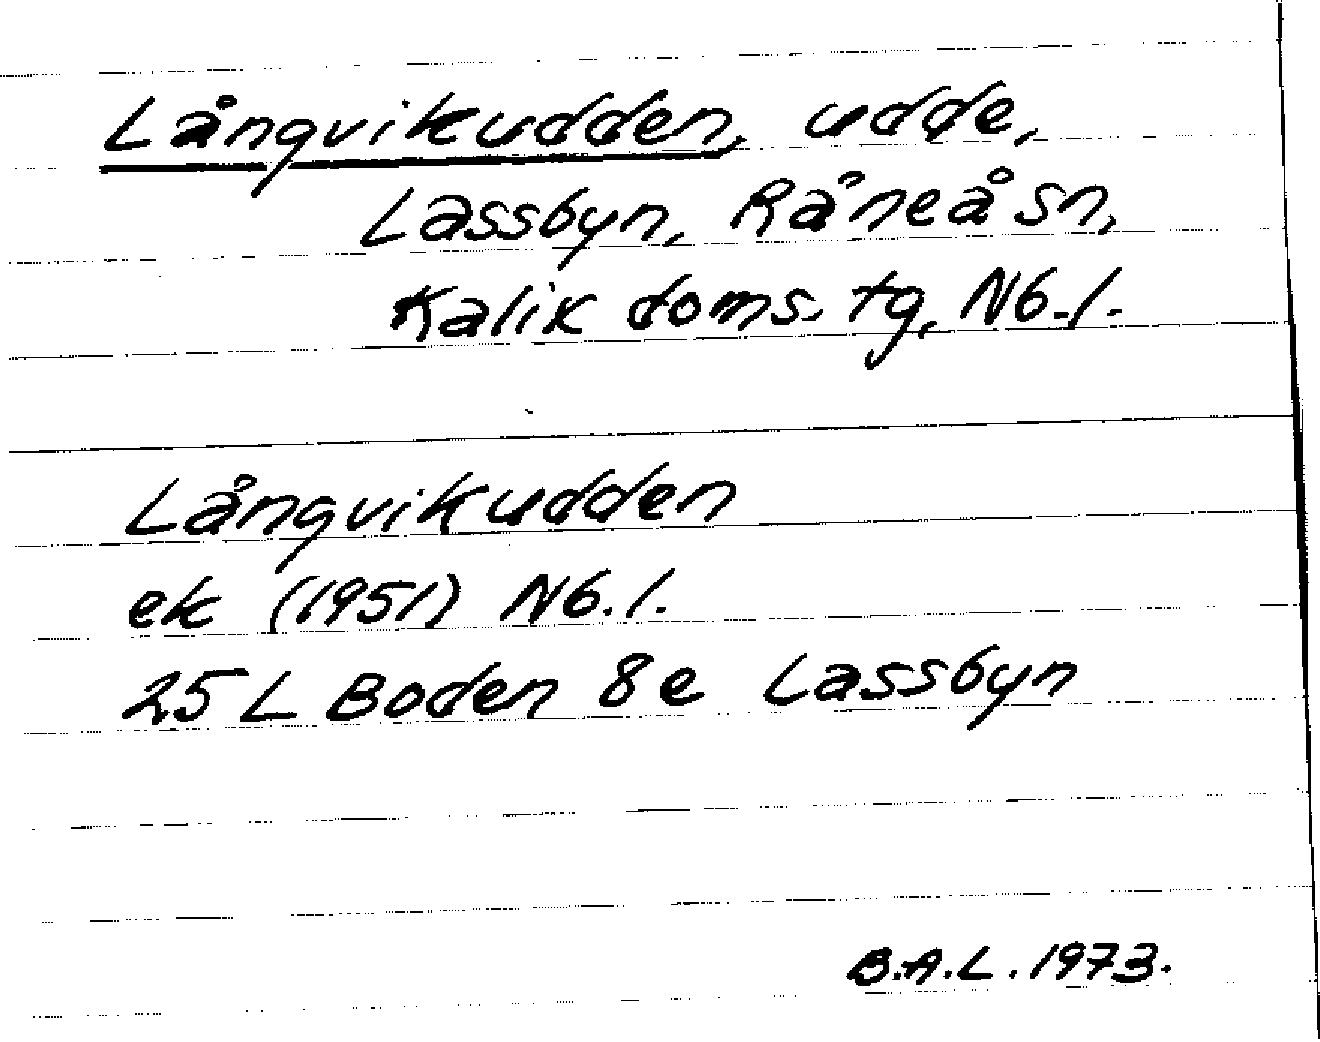 Långvikudden, udde,
Lassbyn, Råneå sn,
Kalix doms. tg, Nb. l.
Långvikudden
ek (1951) Nb. l.
25 L Boden 8e Lassbyn
B.A.L. 1973.